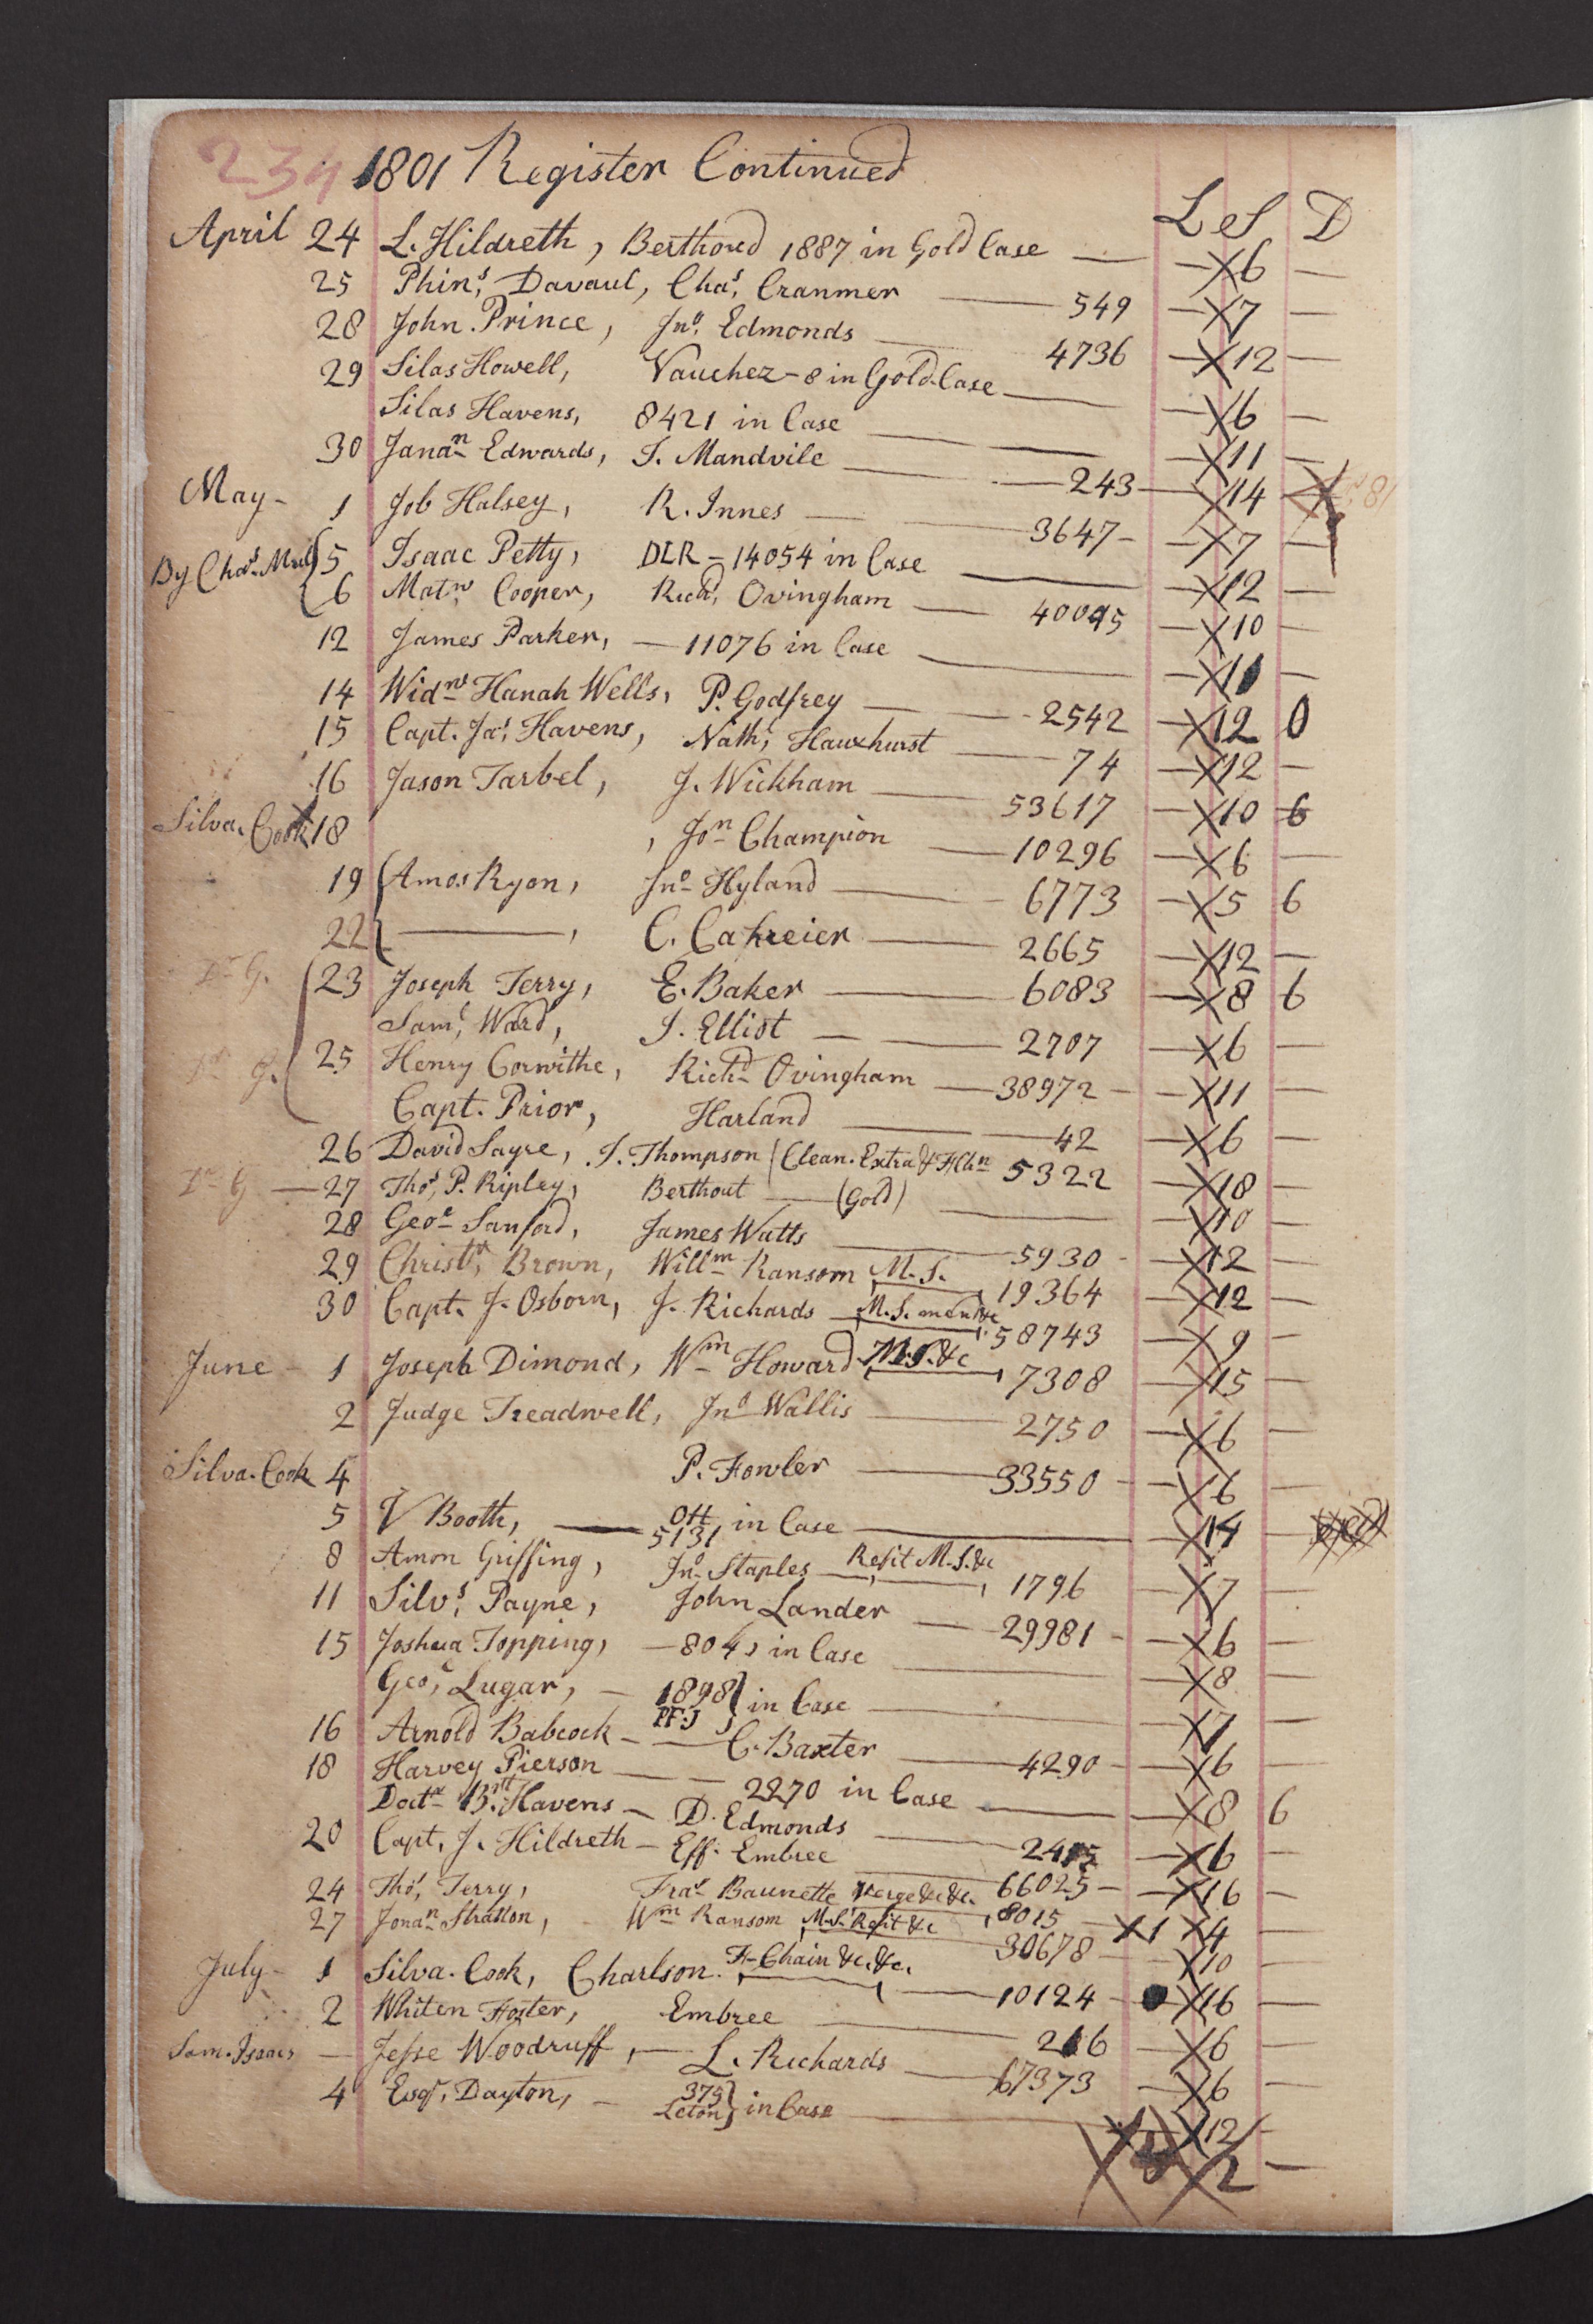 234 1801 Register Continued
L S D
April 24 L. Hildreth, Berthoud 1887 in Gold Case — — X 6 —
25 Phins, Davaul, Chas, Cranmer — 549 — X 7 —
28 John Prince, Jno, Edmonds — 4736 — X 12 —
29 Silas Howell, Vauchez - 8 in Gold Case — — X 6 —
Silas Havens, 8421 in Case — — X 11 —
30 Janan Edwards, J. Mandvile — 243 — X 14
May - 1 Job Halsey, R. Innes — 3647 - — X 7 —
By Chas. 5 Isaac Petty, DLR - 14054 in Case — — X 12 —
6 Matw Cooper, Richd, Ovingham — 40095 — X 10 —
12 James Parker, — 11076 in Case — — X 11 —
14 Widw Hanah Wells, P. Godfrey — 2542 — X 12 0
15 Capt. Jas, Havens, Nathl, Hauxhurst — 74 — X 12 —
16 Jason Tarbel, J. Wickham — 53617 — X 10 6
Silva. Cook 18 , Jon Champion — 10296 — X 6 —
19 Amos Ryon, Jno Hyland — 6773 — X 5 6
22 ———, C. Cahreier — 2665 — X 12 —
Dr G. 23 Joseph Terry, E. Baker — 6083 — X 8 6
Saml, Ward, J. Elliot — 2707 — X 6 —
Dr G. 25 Henry Corwithe, Richd Ovingham — 38972 - — X 11 —
Capt. Prior, Harland — 42 — X 6 —
26 David Sayre, J. Thompson (Clean. Extra & F Chn 5322 — X 18 —
Dr G — 27 Thos, P. Ripley, Berthout — (Gold) — — X 10 —
28 Geoe Sanford, James Watts — 5930 - — X 12 —
29 Christr, Brown, Willm Ransom M.S. 19364 — X 12 —
30 Capt. J. Osborn, J. Richards — M.S. &c 58743 — X 9 —
June - 1 Joseph Dimond, Wm Howard M.S. &c 7308 — X 15 —
2 Judge Treadwell, Jno Wallis — 2750 — X 6 —
Silva. Cook 4 P. Fowler — 33550 - — X 6 —
5 V Booth, — Ott 5131 in Case — — X 14 —
8 Amon Griffing, Jno Staples Refit M.S. &c 1796 — X 7 —
11 Silvs, Payne, John Lander — 29981 - — X 6 —
15 Joshua Topping, — 8041 in Case — — X 8 —
Geoe, Lugar, — 1898 PF:J } in Case — — X 7 —
16 Arnold Babcock — C. Baxter — 4290 — X 6 —
18 Harvey Pierson — — 2270 in Case — — X 8 6
Doctr Havens — D. Edmonds — X 6 —
20 Capt. J. Hildreth — Eff. Embree — 66025 — — X 16 —
24 Thos, Terry, Fras Baunette Verge &c &c. 8015 — X 1 X 4
27 Jonan Stratton, - Wm Ransom M.S. Refit &c 30678 — X 10 —
July - 1 Silva. Cook, Charlson. F-Chain &c. &c. — 10124 - X 16 —
2 Whiten Foster, Embree — 216 — X 6 —
Sam. Isaacs — Jesse Woodruff, — L. Richards — 67373 — X 6 —
4 Esqr, Dayton, — 375 Leton } in Case — X 12 —
X X 2 —